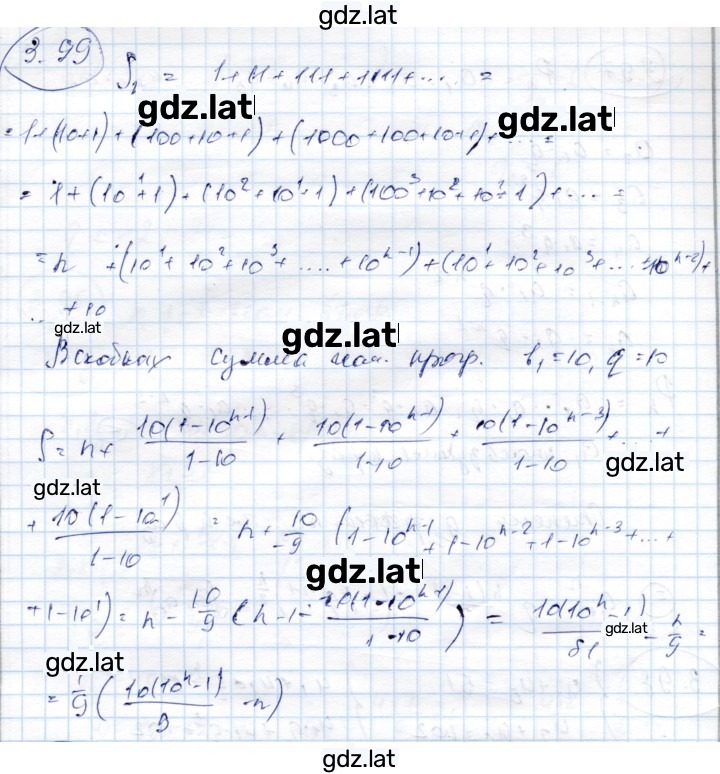 gdz.lat
3.99
S₁ = 1+11+111+1111+... =
gdz.lat
gdz.lat
= 1+(10+1)+(100+10+1)+(1000+100+10+1)+...=
= 1+(10¹+1)+(10²+10¹+1)+(100³+10²+10¹+1)+...=
= n +(10¹+10²+10³+....+10ⁿ⁻¹)+(10¹+10²+10³+...+10ⁿ⁻²)+
...+10
gdz.lat
gdz.lat
В скобках сумма геом. прогр. b₁=10, q=10
S = n + 10(1-10ⁿ⁻¹)/1-10 + 10(1-10ⁿ⁻¹)/1-10 + 10(1-10ⁿ⁻³)/1-10 +...+
gdz.lat
gdz.lat
+ 10(1-10¹)/1-10 = n + 10/-9 (1-10ⁿ⁻¹+1-10ⁿ⁻²+1-10ⁿ⁻³+...+
gdz.lat
+1-10¹) = n - 10/9 (n-1- 10(1-10ⁿ⁻¹)/1-10) = 10(10ⁿ-1)/81 - n/9 =
gdz.lat
gdz.lat
= 1/9 (10(10ⁿ-1)/9 - n)
gdz.lat